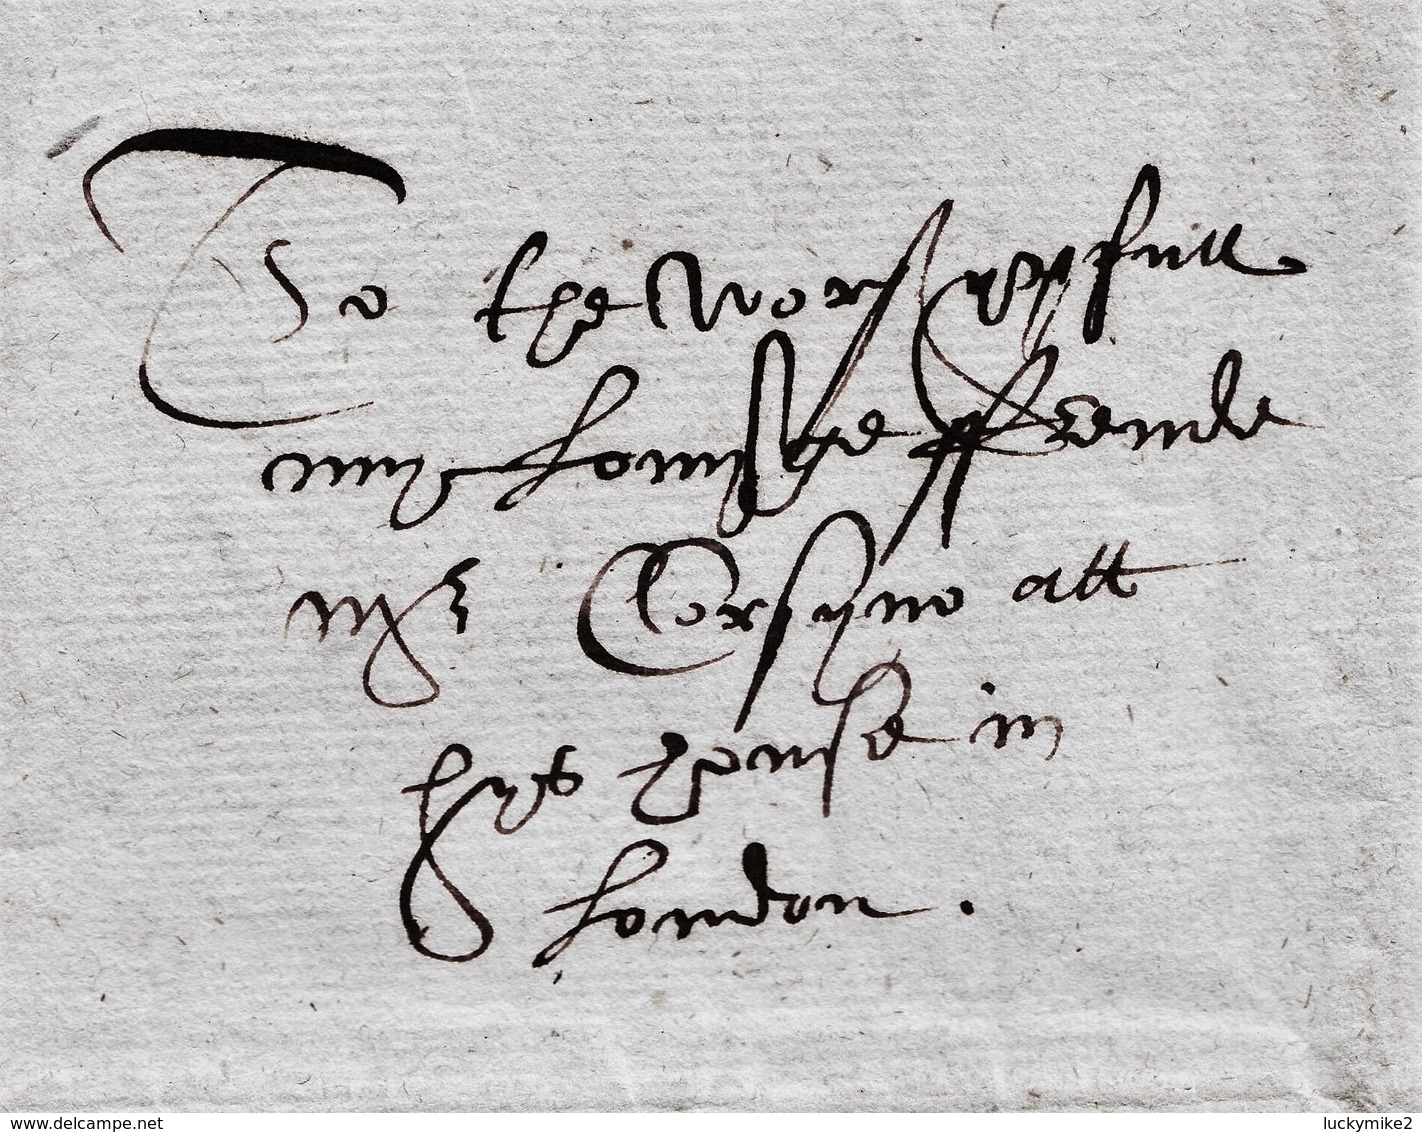 To the worshypfull
my lovynge ffrende
Mr Corsyno att
hys house in
london .
www.delcampe.net
luckymike2